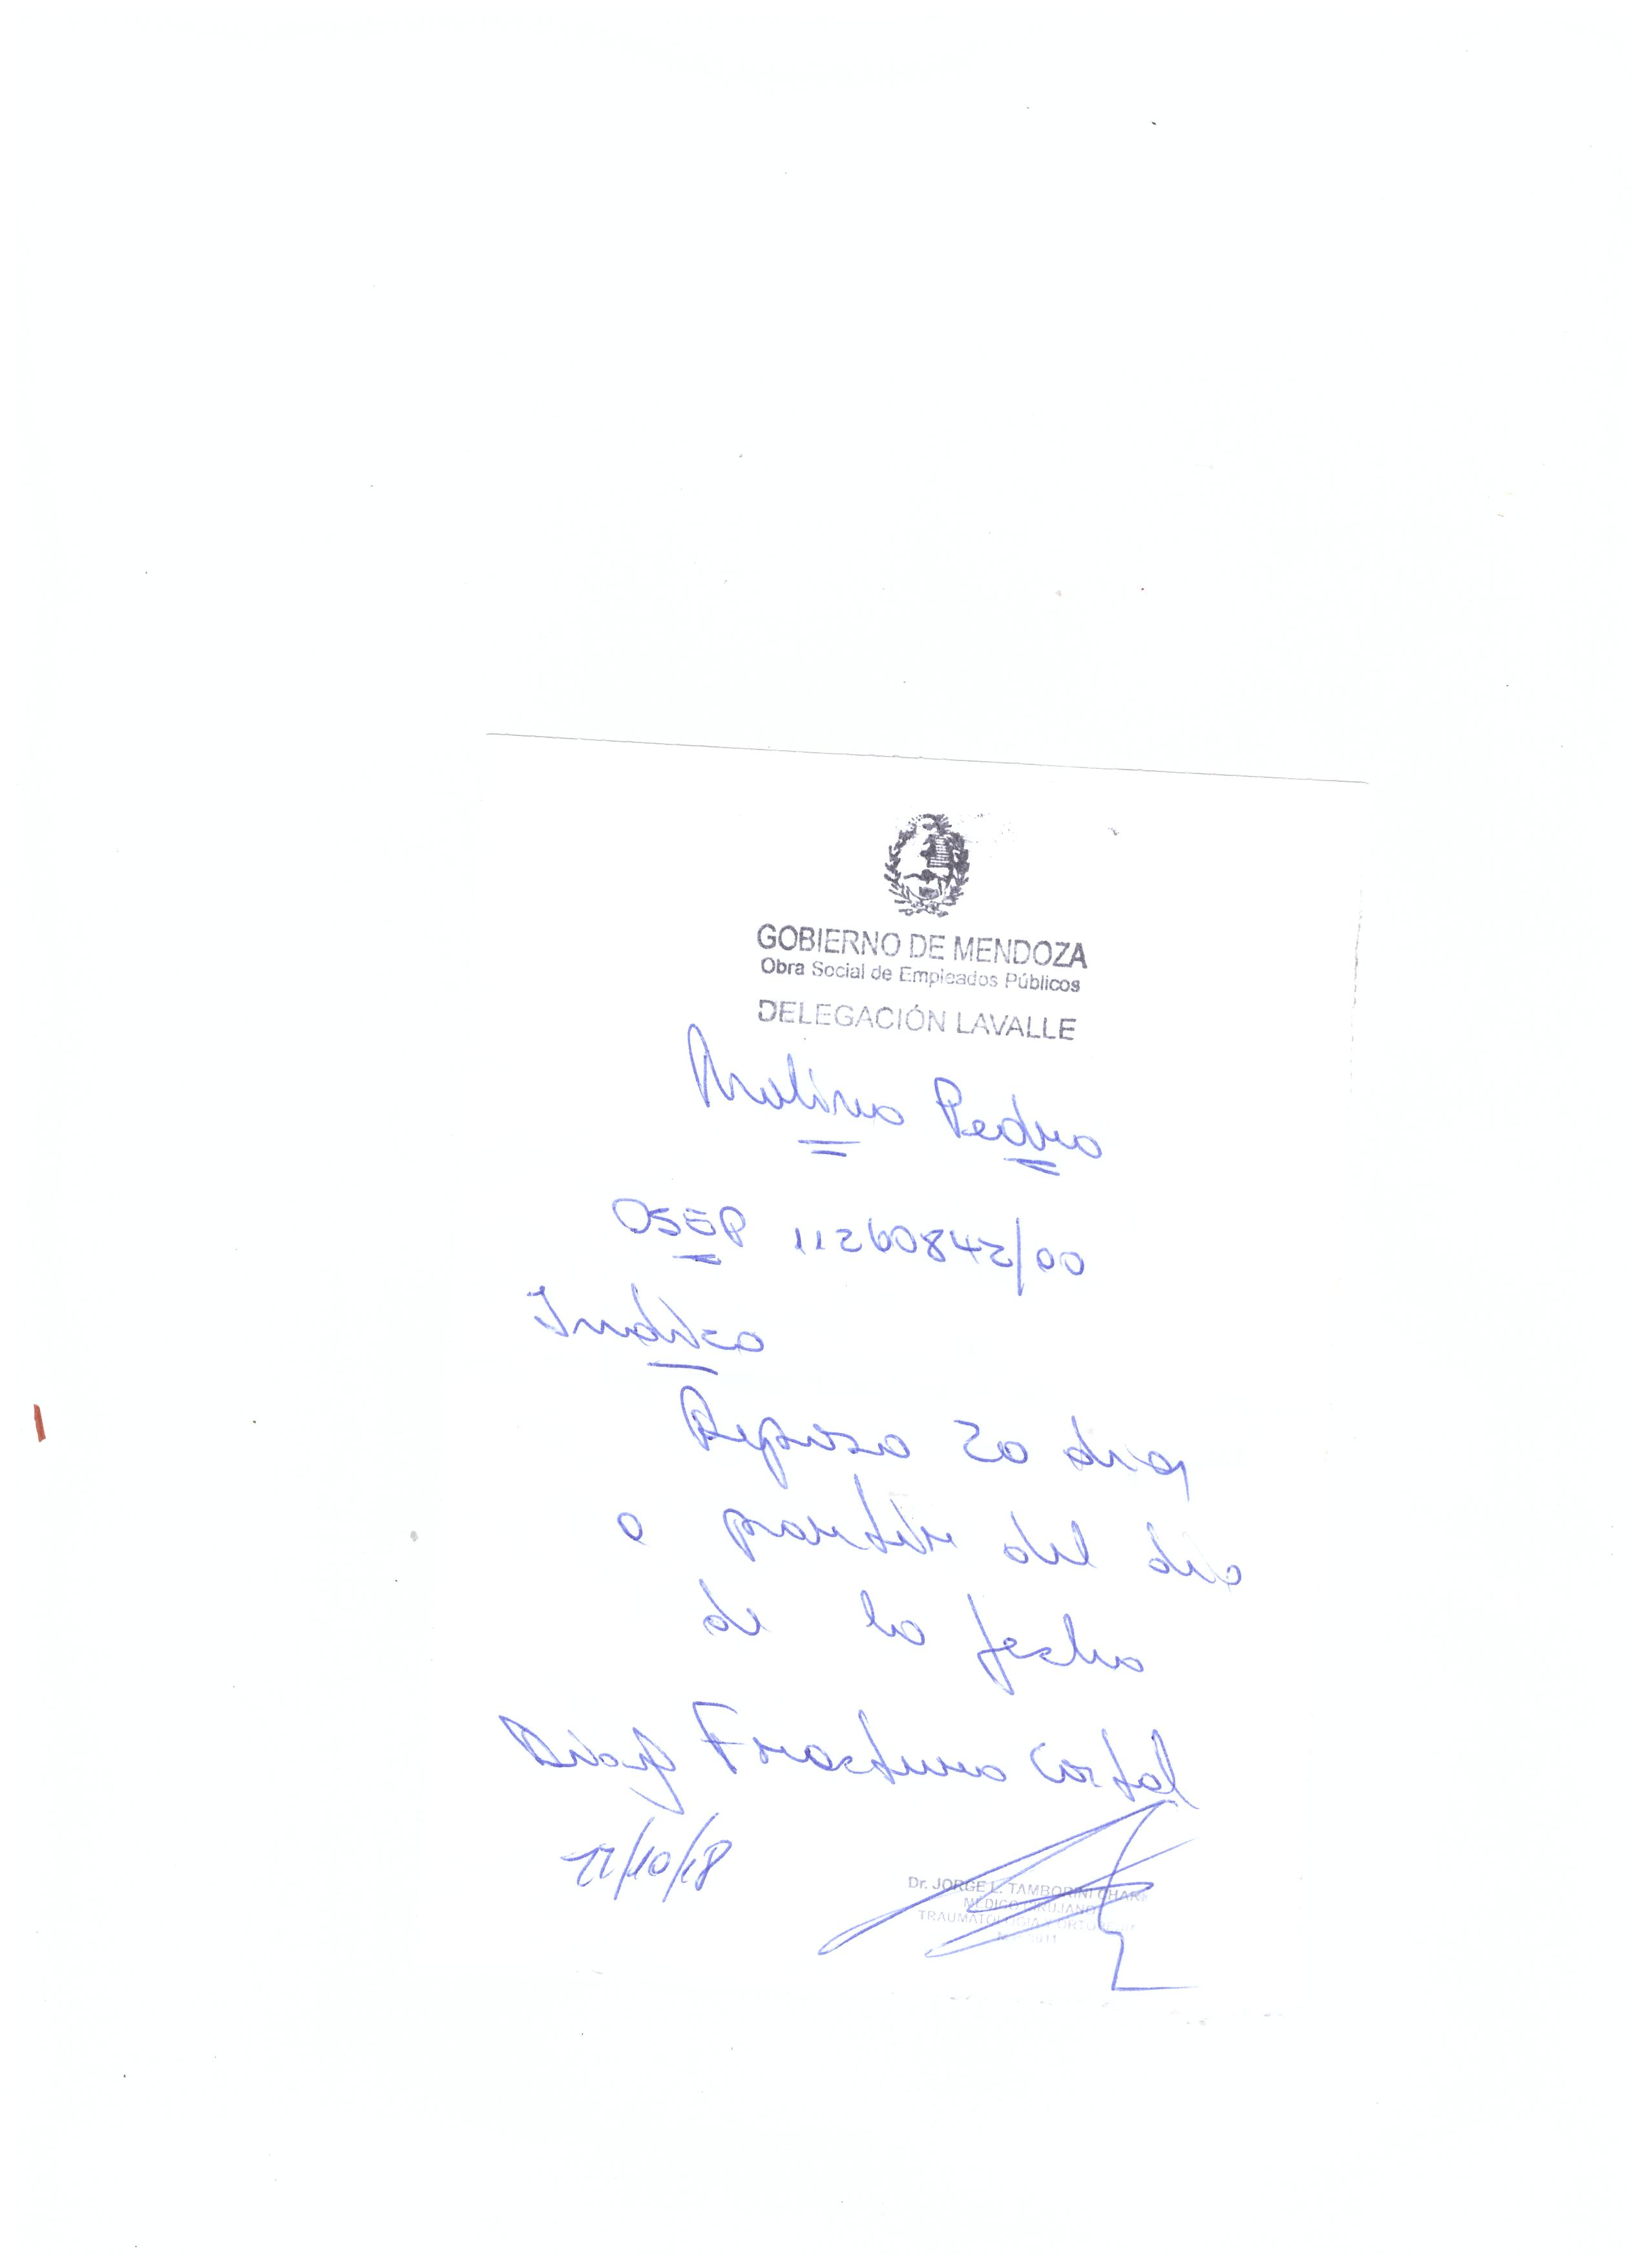 GOBIERNO DE MENDOZA
Obra Social de Empleados Públicos
DELEGACIÓN LAVALLE
Molina Pedro
OSEP 11260842/00
Indico
Reposo 20 dias
a partir del dia
de la fecha
Diag Fractura Costal
/10/18
Dr. JORGE L. TAMBORINI CHAR
MEDICO CIRUJANO
TRAUMATOLOGIA Y ORTOPEDIA